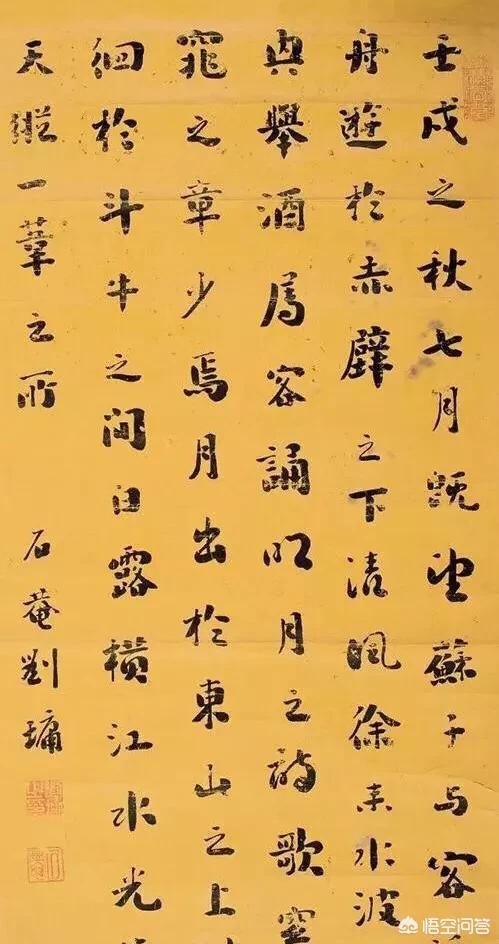 壬戌之秋七月既望蘇子与客
舟遊於赤壁之下清風徐来水波
興舉酒属客誦明月之詩歌窈
窕之章少焉月出於東山之上
徊於斗牛之間白露横江水光
天縱一葦之所
石菴劉墉
悟空问答